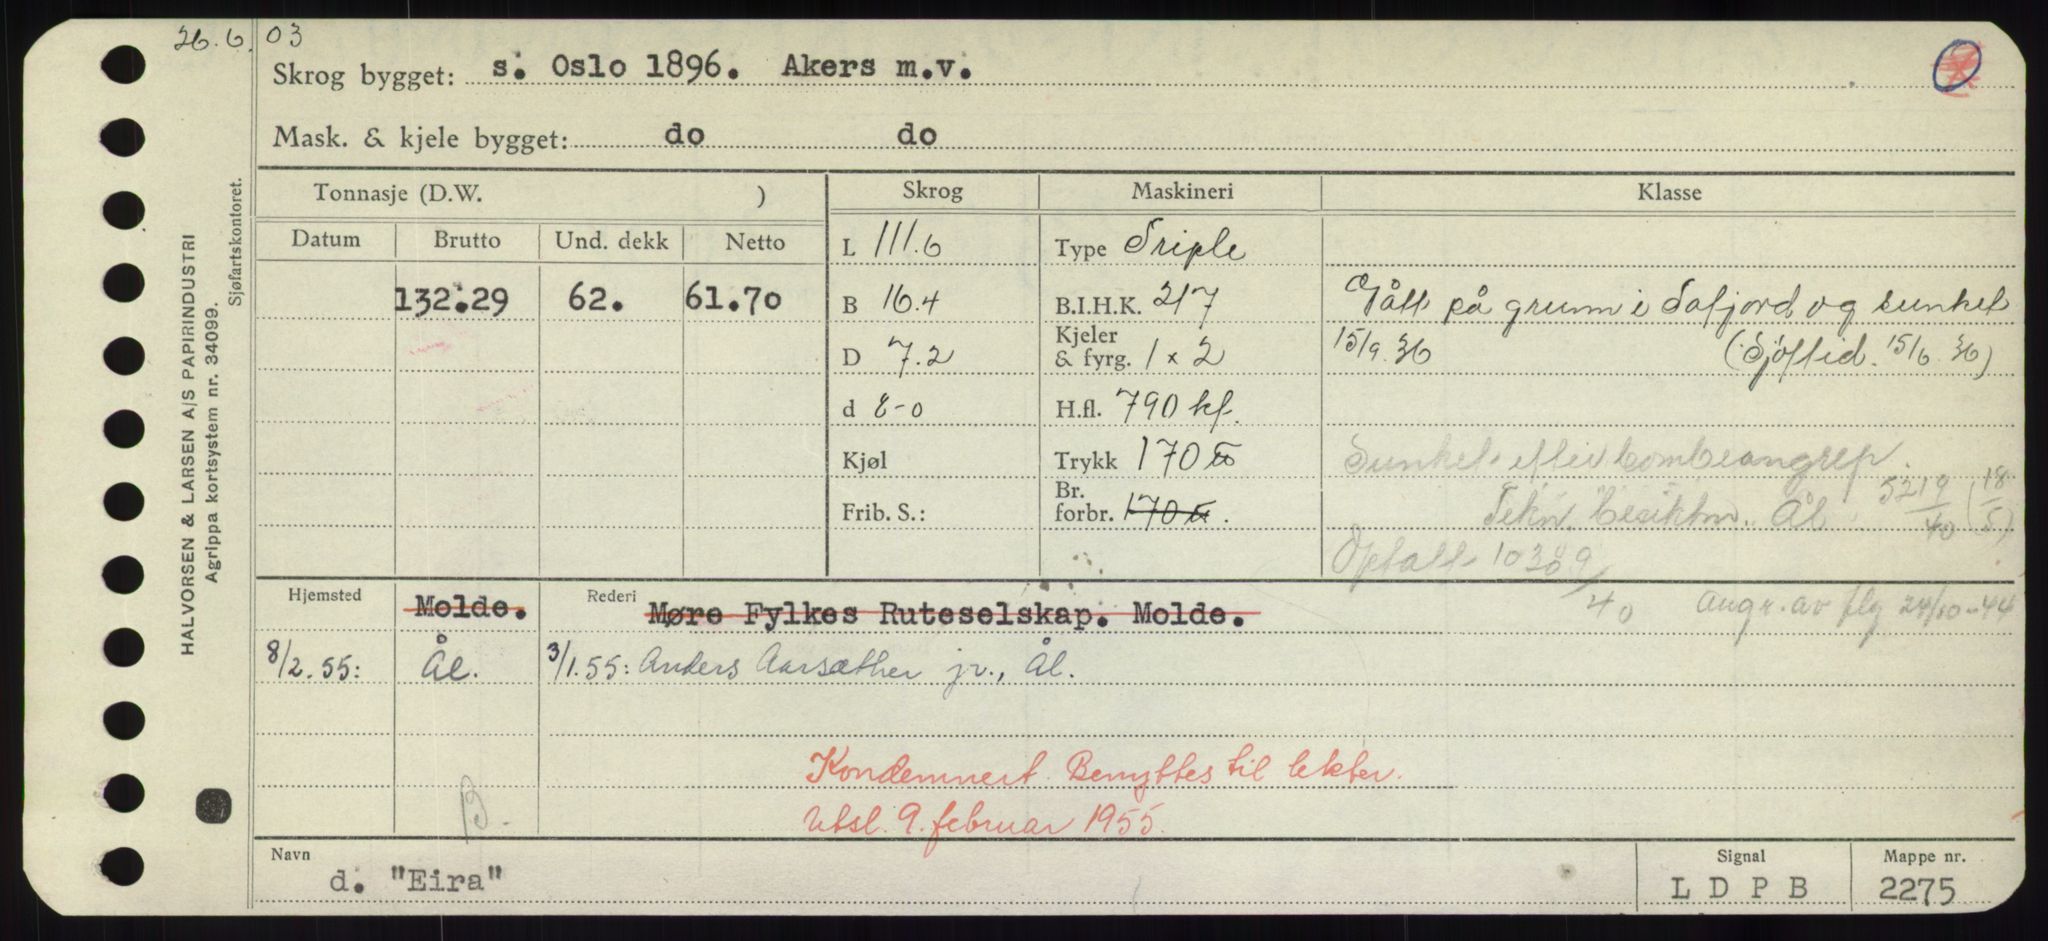 26.6.03
Skrog bygget: s. Oslo 1896. Akers m.v.
Mask. & kjele bygget: do do
Tonnasje (D.W. )
Skrog
Maskineri
Klasse
Datum Brutto Und. dekk Netto
132.29 62. 61.70
L 111.6
B 16.4
D 7.2
d 8-0
Kjøl
Frib. S.:
Type Triple
B.I.H.K. 217
Kjeler & fyrg. 1 x 2
H.fl. 790 kf.
Trykk 170 tb
Br. forbr. 170 tb.
Gått på grunn i Tafjord og sunket
15/9.36 (Sjøftid. 15/6.36)
Sunket efter bombeangrep.
Tekn. besiktn. Ål 5219/40 (18/5)
Optatt 10309/40 angr. av fly 24/10-44
Hjemsted Molde. Rederi Møre Fylkes Ruteselskap. Molde.
8/2.55: Ål. 3/1.55: Anders Aarsæther jr., Ål.
Kondemnert. Benyttes til lekter.
B. Utsl. 9. februar 1955.
Navn d. "Eira"
Signal L D P B
Mappe nr. 2275
HALVORSEN & LARSEN A/S PAPIRINDUSTRI
Agrippa kortsystem nr. 34099.
Sjøfartskontoret.